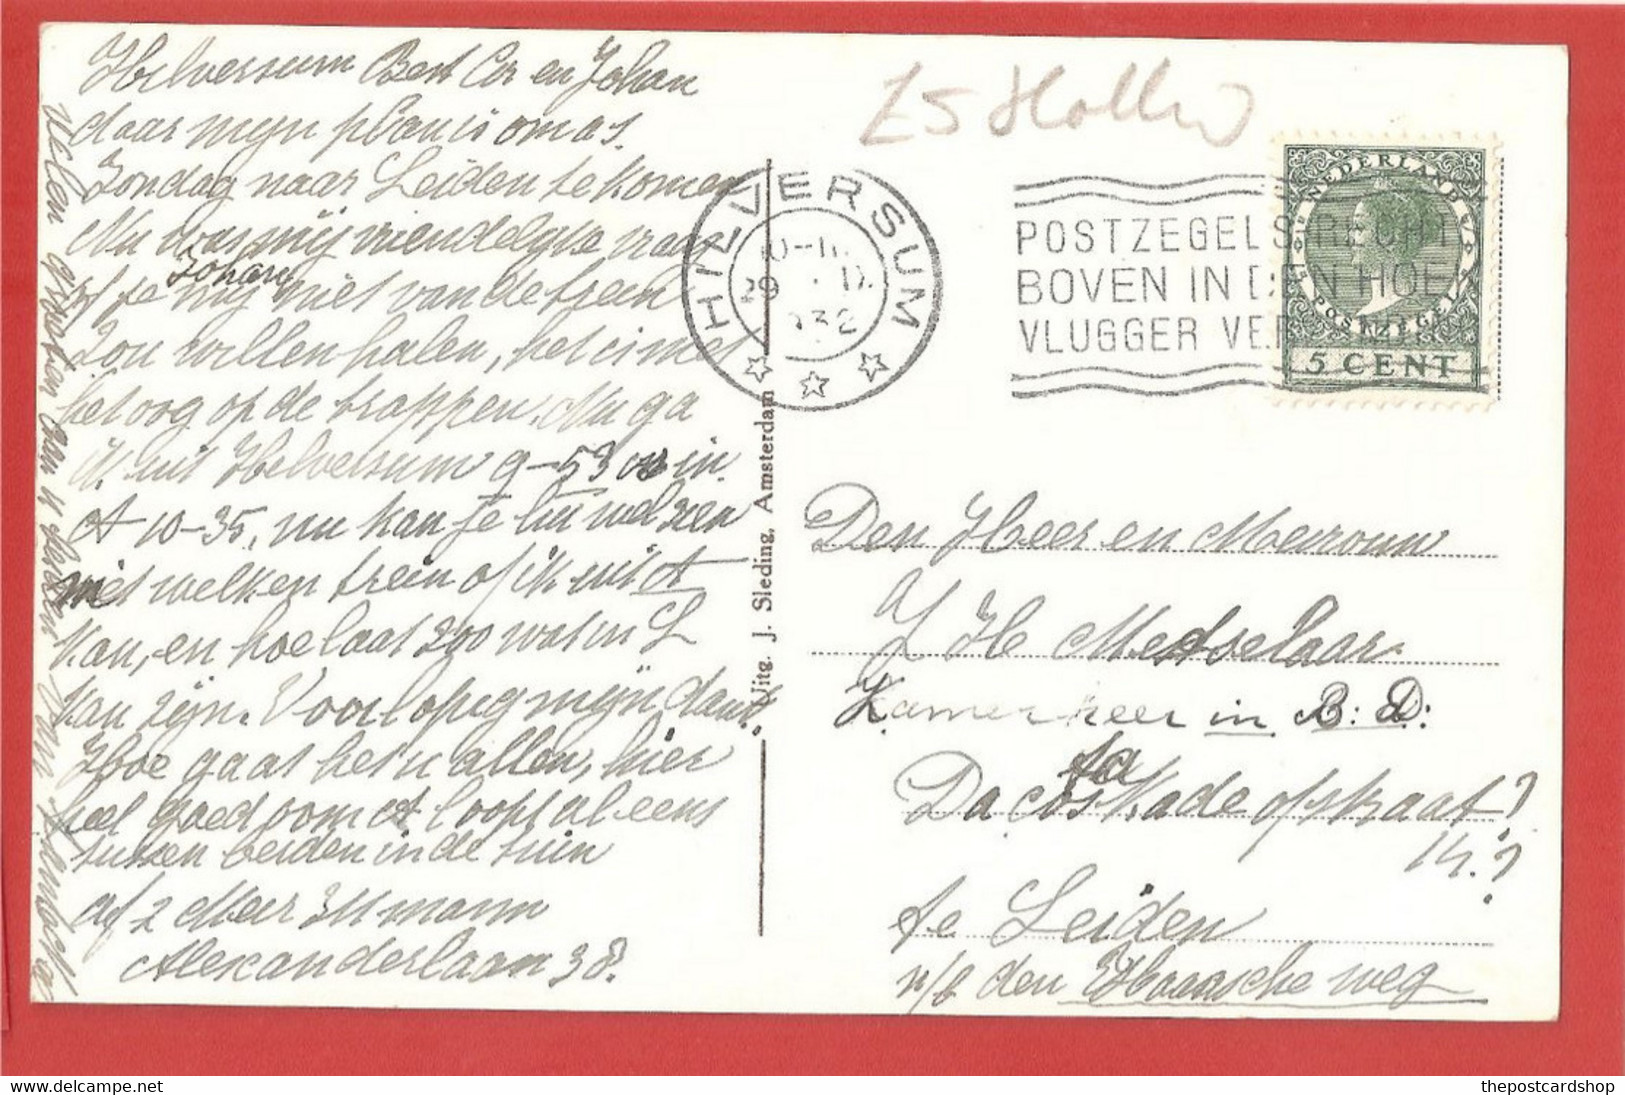 Hilversum Bert Cor en Johan
daar mijn plan is om a.s.
Zondag naar Leiden te komen
Nu was mijn vriendelijke vraag
of je mij niet van de trein
Johan
zou willen halen, het is met
het oog op de trappen. Nu ga
ik uit Hilversum 9-53 in
A 10-35, nu kan je wel zien
met welken trein of ik uit A
kan, en hoe laat zoo wat in L
kan zijn. Voorlopig mijn dank.
Hoe gaat het u allen, hier
heel goed oom A loopt al eens
tussen beiden in de tuin
af
Alexanderlaan 38.
Velen groeten van
£5 Holl
HILVERSUM
1932
POSTZEGEL S RECHT
BOVEN IN DEN HOE
VLUGGER VE
NEDERLAND
POSTZEGEL
5 CENT
Uitg. J. Sleding, Amsterdam
Den Heer en Mevrouw
J H Metselaar
Kamerheer in B: D:
Da Costa Kade of straat?
14.?
te Leiden
v/h den Haagsche weg
thepostcardshop